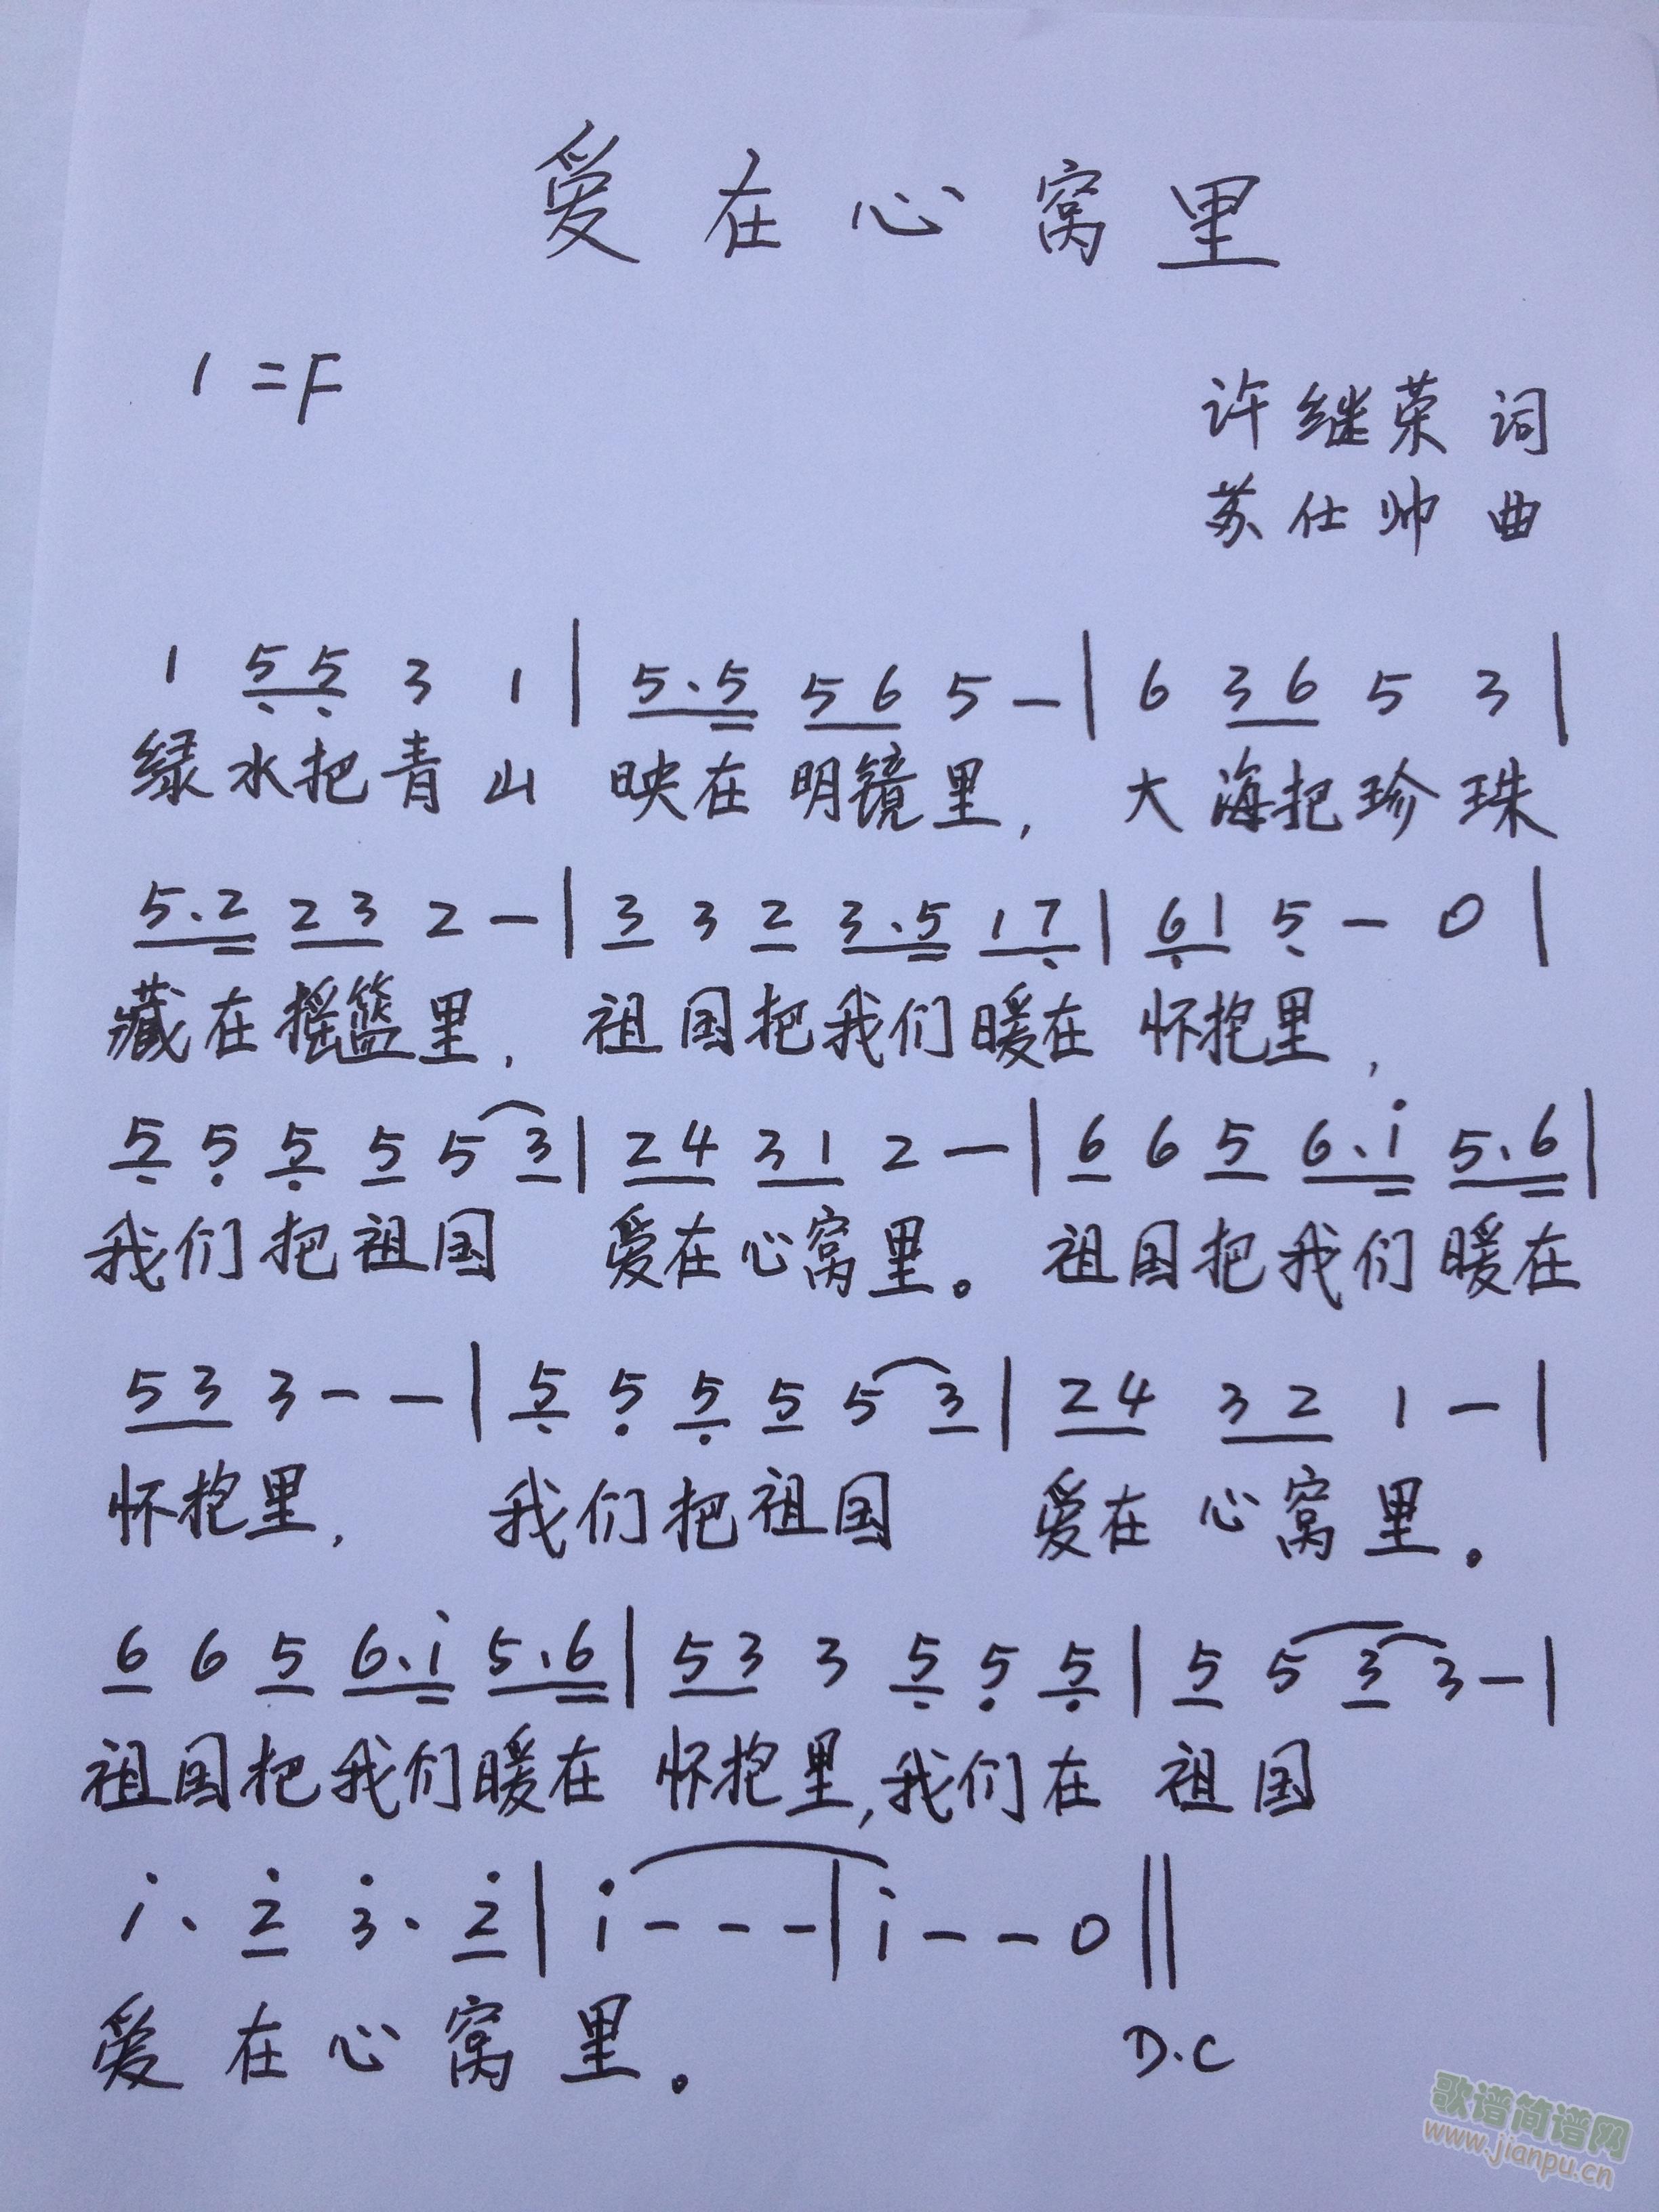 爱在心窝里
1=F
许继荣 词
苏仕帅 曲
1 5̣5̣ 3 1 | 5.5 56 5 - | 6 36 5 3 |
绿水把青山 映在明镜里, 大海把珍珠
5.2 23 2 - | 3 3 2 3.5 17̣ | 6̣1 5̣ - 0 |
藏在摇篮里, 祖国把我们暖在 怀抱里,
5̣ 5̣ 5̣ 5 5 3 | 24 31 2 - | 6 6 5 6.i 5.6 |
我们把祖国 爱在心窝里。 祖国把我们暖在
53 3 - - | 5̣ 5̣ 5̣ 5 5 3 | 24 32 1 - |
怀抱里, 我们把祖国 爱在心窝里。
6 6 5 6.i 5.6 | 53 3 5̣ 5̣ 5̣ | 5 5 3 3 - |
祖国把我们暖在 怀抱里,我们在 祖国
i. 2̇ 3̇. 2̇ | i - - - | i - - 0 ||
爱在心窝里。 D.C
歌谱简谱网
www.jianpu.cn